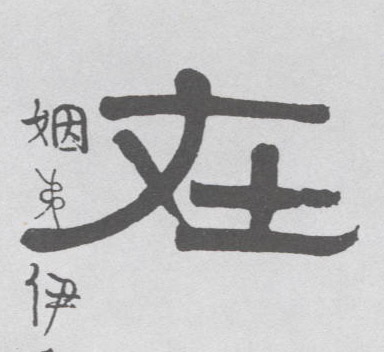 在
姻弟伊